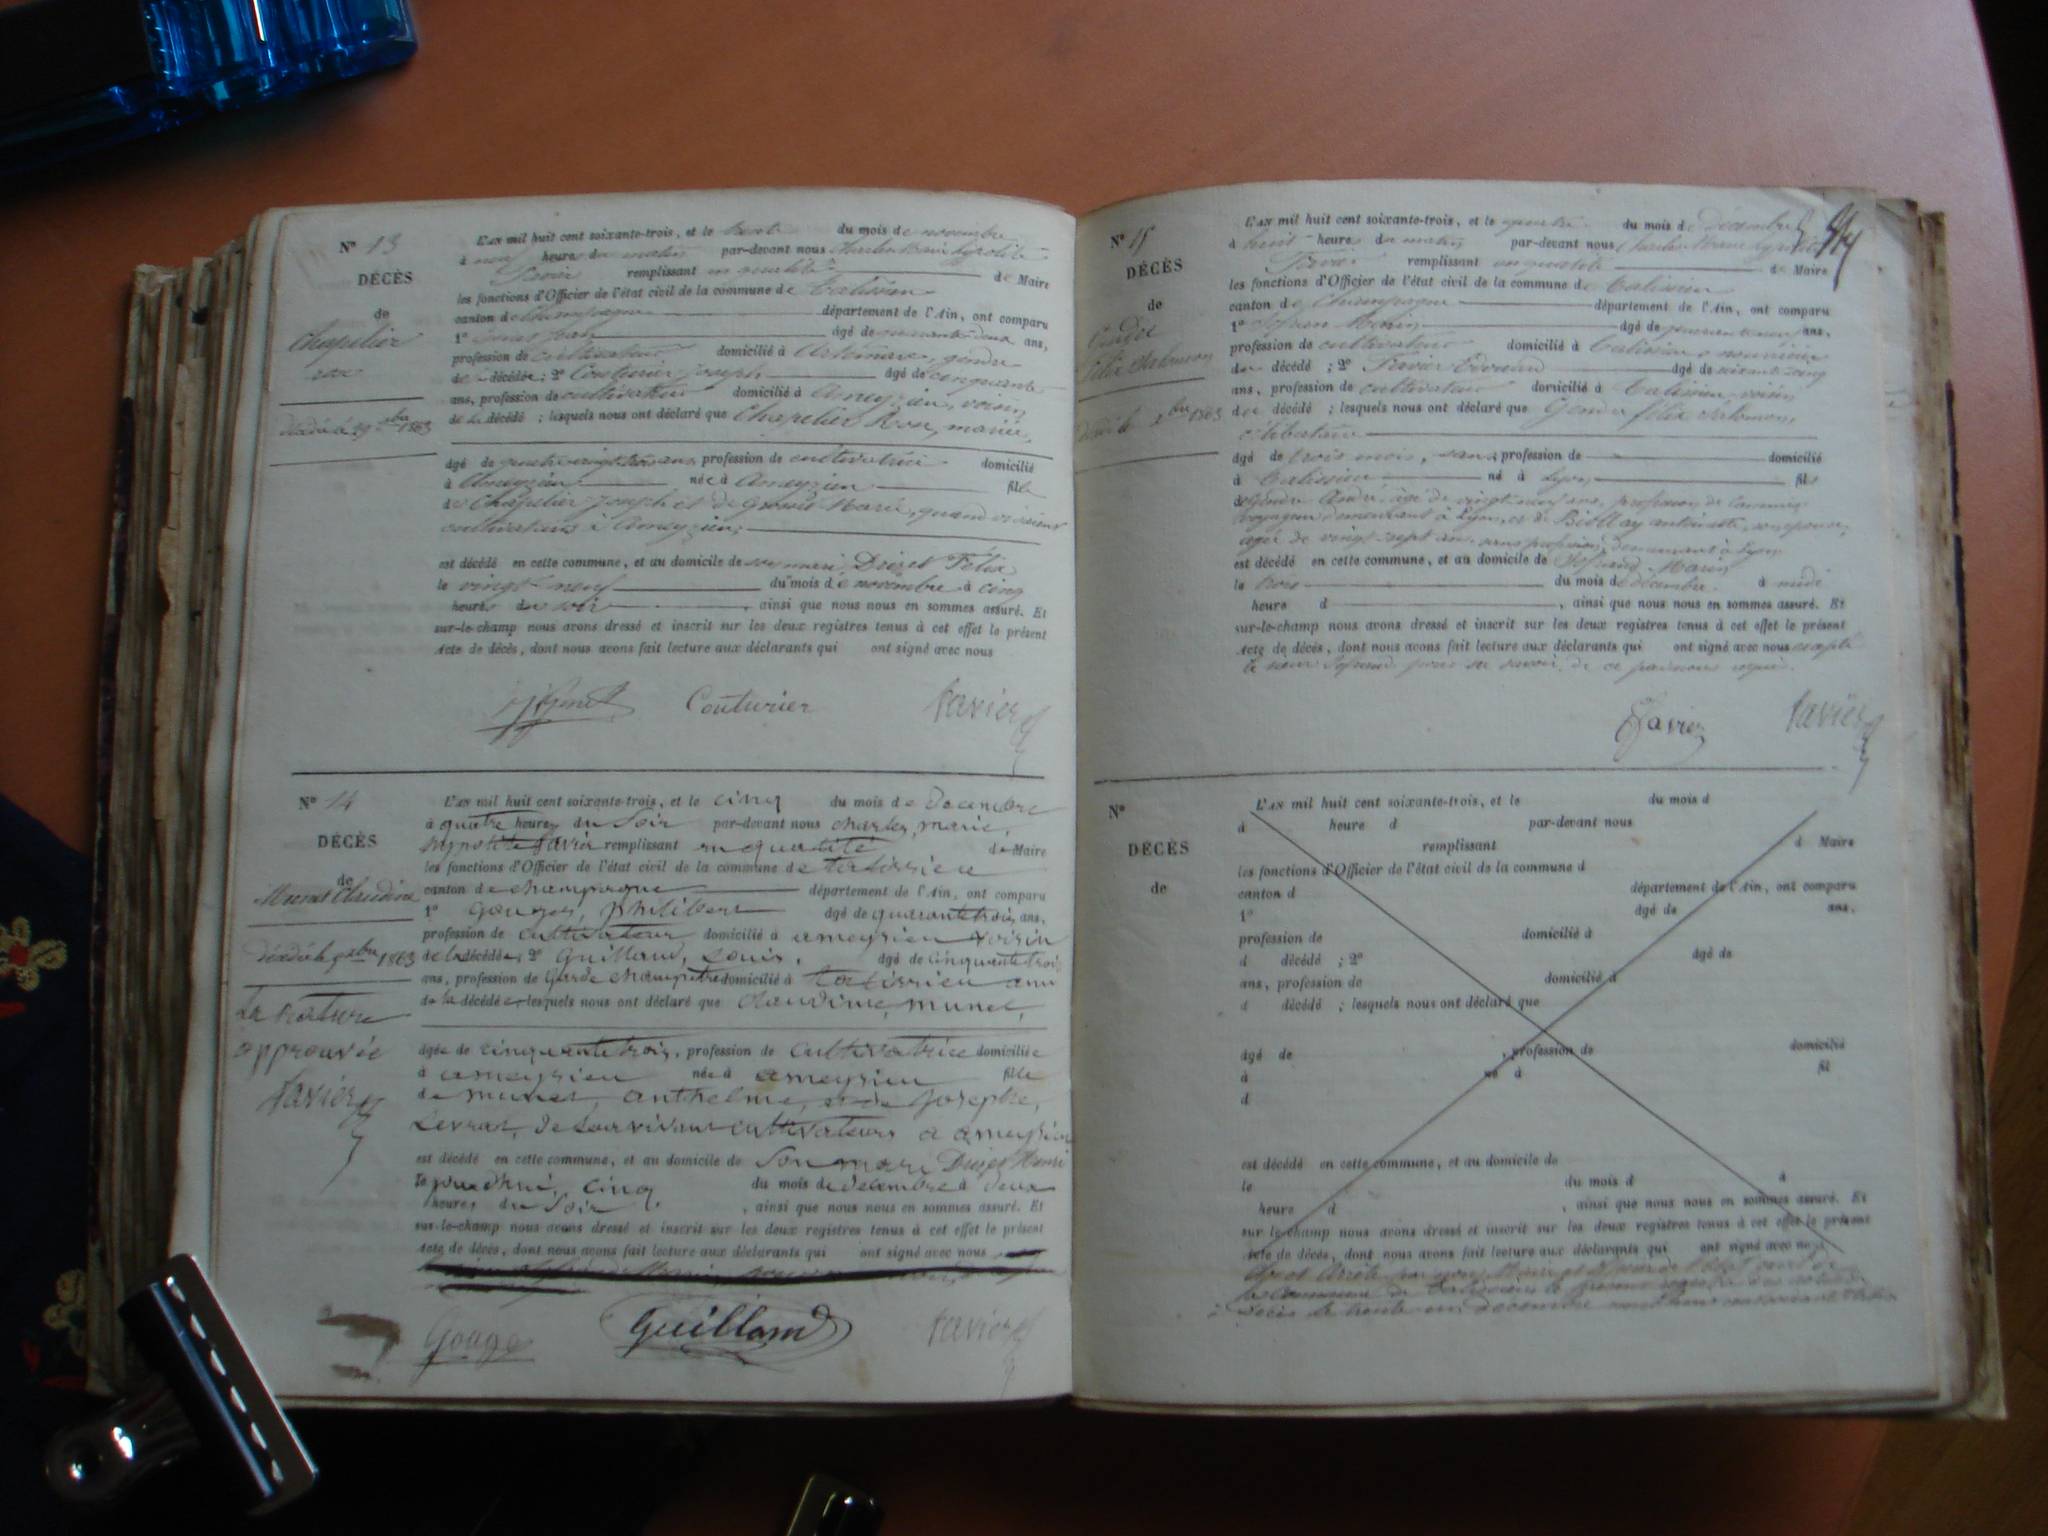 N° 13
DÉCÈS
de
Chapelier
décédé le 29 9bre 1863
L'AN mil huit cent soixante-trois, et le trente du mois de novembre
à neuf heures du matin par-devant nous Charles Marie hypolite
Tavier remplissant en qualité de Maire
les fonctions d'Officier de l'état civil de la commune de Talissieu
canton de Champagne département de l'Ain, ont comparu
1° Jean âgé de quarante deux ans,
profession de cultivateur domicilié à Artemare, gendre
de la décédée ; 2° Couturier joseph âgé de cinquante
ans, profession de cultivateur domicilié à Ameyzieu, voisin
de la décédé ; lesquels nous ont déclaré que Chapelier Rose, mariée,
âgé de quatre vingt trois ans profession de cultivatrice domicilié
à Ameyzieu née à Ameyzieu fille
de Chapelier Joseph et de Marie, quand vivaient
cultivateurs à Ameyzieu,
est décédé en cette commune, et au domicile de son mari Druet Félix
le vingt neuf du mois de novembre à cinq
heures du soir , ainsi que nous nous en sommes assuré. Et
sur-le-champ nous avons dressé et inscrit sur les deux registres tenus à cet effet le présent
Acte de décès, dont nous avons fait lecture aux déclarants qui ont signé avec nous
Couturier Tavier
N° 14
DÉCÈS
de
Munet Claudine
décédé le 5 xbre 1863
La rature
approuvée
Tavier
L'AN mil huit cent soixante-trois, et le cinq du mois de Decembre
à quatre heures du Soir par-devant nous charles, marie,
hypolite Tavier remplissant en qualité de Maire
les fonctions d'Officier de l'état civil de la commune de talissieu
canton de champagne département de l'Ain, ont comparu
1° philibert âgé de quarante trois ans,
profession de cultivateur domicilié à ameysieu voisin
de la décédée ; 2° Guilland, Louis, âgé de cinquante trois
ans, profession de Garde champetre domicilié à talissieu ami
de la décédée, lesquels nous ont déclaré que claudine, munet,
âgée de cinquante trois, profession de cultivatrice domiciliée
à ameysieu née à ameysieu fille
de munet, anthelme, et de Josephte,
Levrat, de Leur vivant cultivateurs a ameysieu
est décédé en cette commune, et au domicile de Son mari Druet Henri
le jourdhui, cinq du mois de decembre à deux
heures du Soir , ainsi que nous nous en sommes assuré. Et
sur-le-champ nous avons dressé et inscrit sur les deux registres tenus à cet effet le présent
Acte de décès, dont nous avons fait lecture aux déclarants qui ont signé avec nous
Gouge Guilland Tavier
N° 15
DÉCÈS
de
Gindre
Félix Salomon
décédé le 3 xbre 1863
L'AN mil huit cent soixante-trois, et le quatre du mois de Décembre
à huit heures du matin par-devant nous Charles Marie hypolite
Tavier remplissant en qualité de Maire
les fonctions d'Officier de l'état civil de la commune de Talissieu
canton de Champagne département de l'Ain, ont comparu
1° Marin âgé de ans,
profession de cultivateur domicilié à Talissieu nourricier
du décédé ; 2° Tavier Edouard âgé de soixante cinq
ans, profession de cultivateur domicilié à Talissieu, voisin
du décédé ; lesquels nous ont déclaré que Gindre félix Salomon,
célibataire
âgé de trois mois, sans profession de domicilié
à Talissieu né à Lyon fils
de Gindre André, âgé de vingt neuf ans, profession de commis
voyageur demeurant à Lyon, et de Biollay antoinette, son épouse,
agée de vingt sept ans sans profession, demeurant à Lyon
est décédé en cette commune, et au domicile de Marin
le trois du mois de décembre à midi
heure d , ainsi que nous nous en sommes assuré. Et
sur-le-champ nous avons dressé et inscrit sur les deux registres tenus à cet effet le présent
Acte de décès, dont nous avons fait lecture aux déclarants qui ont signé avec nous excepté
le sieur pour ne savoir de ce par nous requis.
Tavier Tavier
N°
DÉCÈS
de
L'AN mil huit cent soixante-trois, et le du mois d
à heure d par-devant nous
remplissant d Maire
les fonctions d'Officier de l'état civil de la commune d
canton d département de l'Ain, ont comparu
1° âgé de ans,
profession de domicilié à
d décédé ; 2° âgé de
ans, profession de domicilié à
d décédé ; lesquels nous ont déclaré que
âgé de , profession de domicilié
à né à fil
d
est décédé en cette commune, et au domicile de
le du mois d à
heure d , ainsi que nous nous en sommes assuré. Et
sur-le-champ nous avons dressé et inscrit sur les deux registres tenus à cet effet le présent
Acte de décès, dont nous avons fait lecture aux déclarants qui ont signé avec nous
Clos et Arrêté par nous Maire et officier de l'Etat civil de
la commune de Talissieu le présent registre des actes de
Décès le trente un decembre